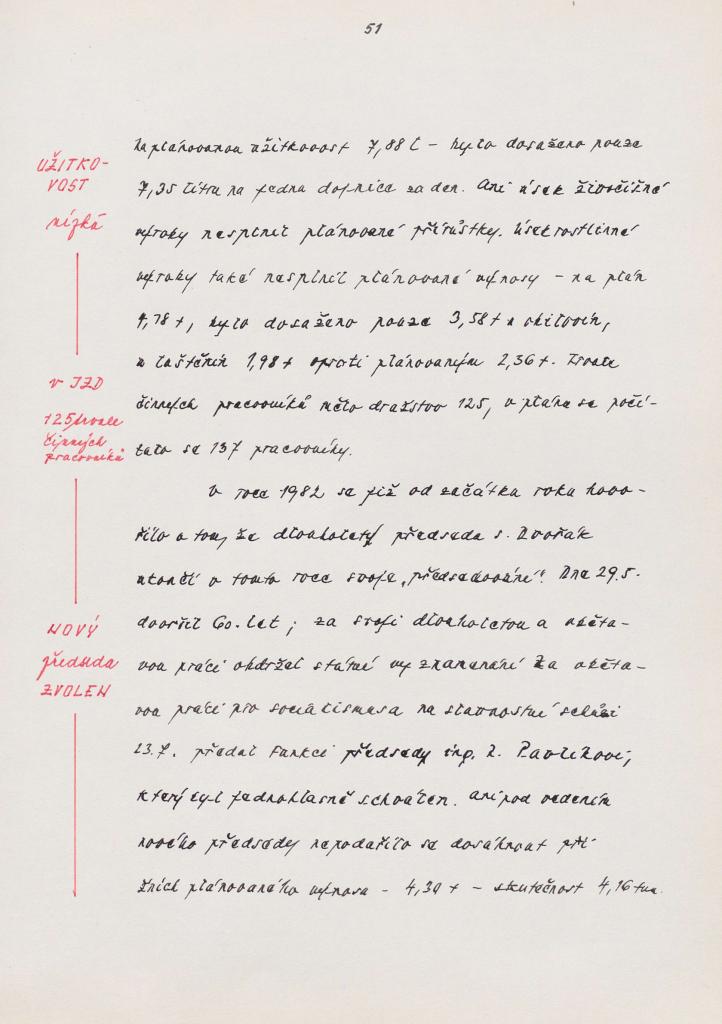 51
UŽITKO-
VOST
nízká
na plánovanou užitkovost 7,88 l – bylo dosaženo pouze
7,35 litru na jednu dojnici za den. Ani úsek živočišné
výroby nesplnil plánované přírůstky. Úsek rostlinné
výroby také nesplnil plánované výnosy – na plán
4,78 t, bylo dosaženo pouze 3,58 t u obilovin,
u luštěnin 1,98 t oproti plánovaným 2,36 t. Trvale
v JZD
125 trvale
činných
pracovníků
činných pracovníků mělo družstvo 125, v plánu se počí-
talo se 137 pracovníky.
V roce 1982 se již od začátku roku hovo-
řilo o tom, že dlouholetý předseda s. Dvořák
ukončí v tomto roce svoje „předsedování". Dne 29.5.
NOVÝ
předseda
ZVOLEN
dovršil 60. let; za svoji dlouholetou a oběta-
vou práci obdržel státní vyznamenání Za oběta-
vou práci pro socialismus a na slavnostní schůzi
23.7. předal funkci předsedy ing. Z. Pavlíkovi,
který byl jednohlasně schválen. Ani pod vedením
nového předsedy nepodařilo se dosáhnout při
žních plánovaného výnosu – 4,39 t – skutečnost 4,16 tun.